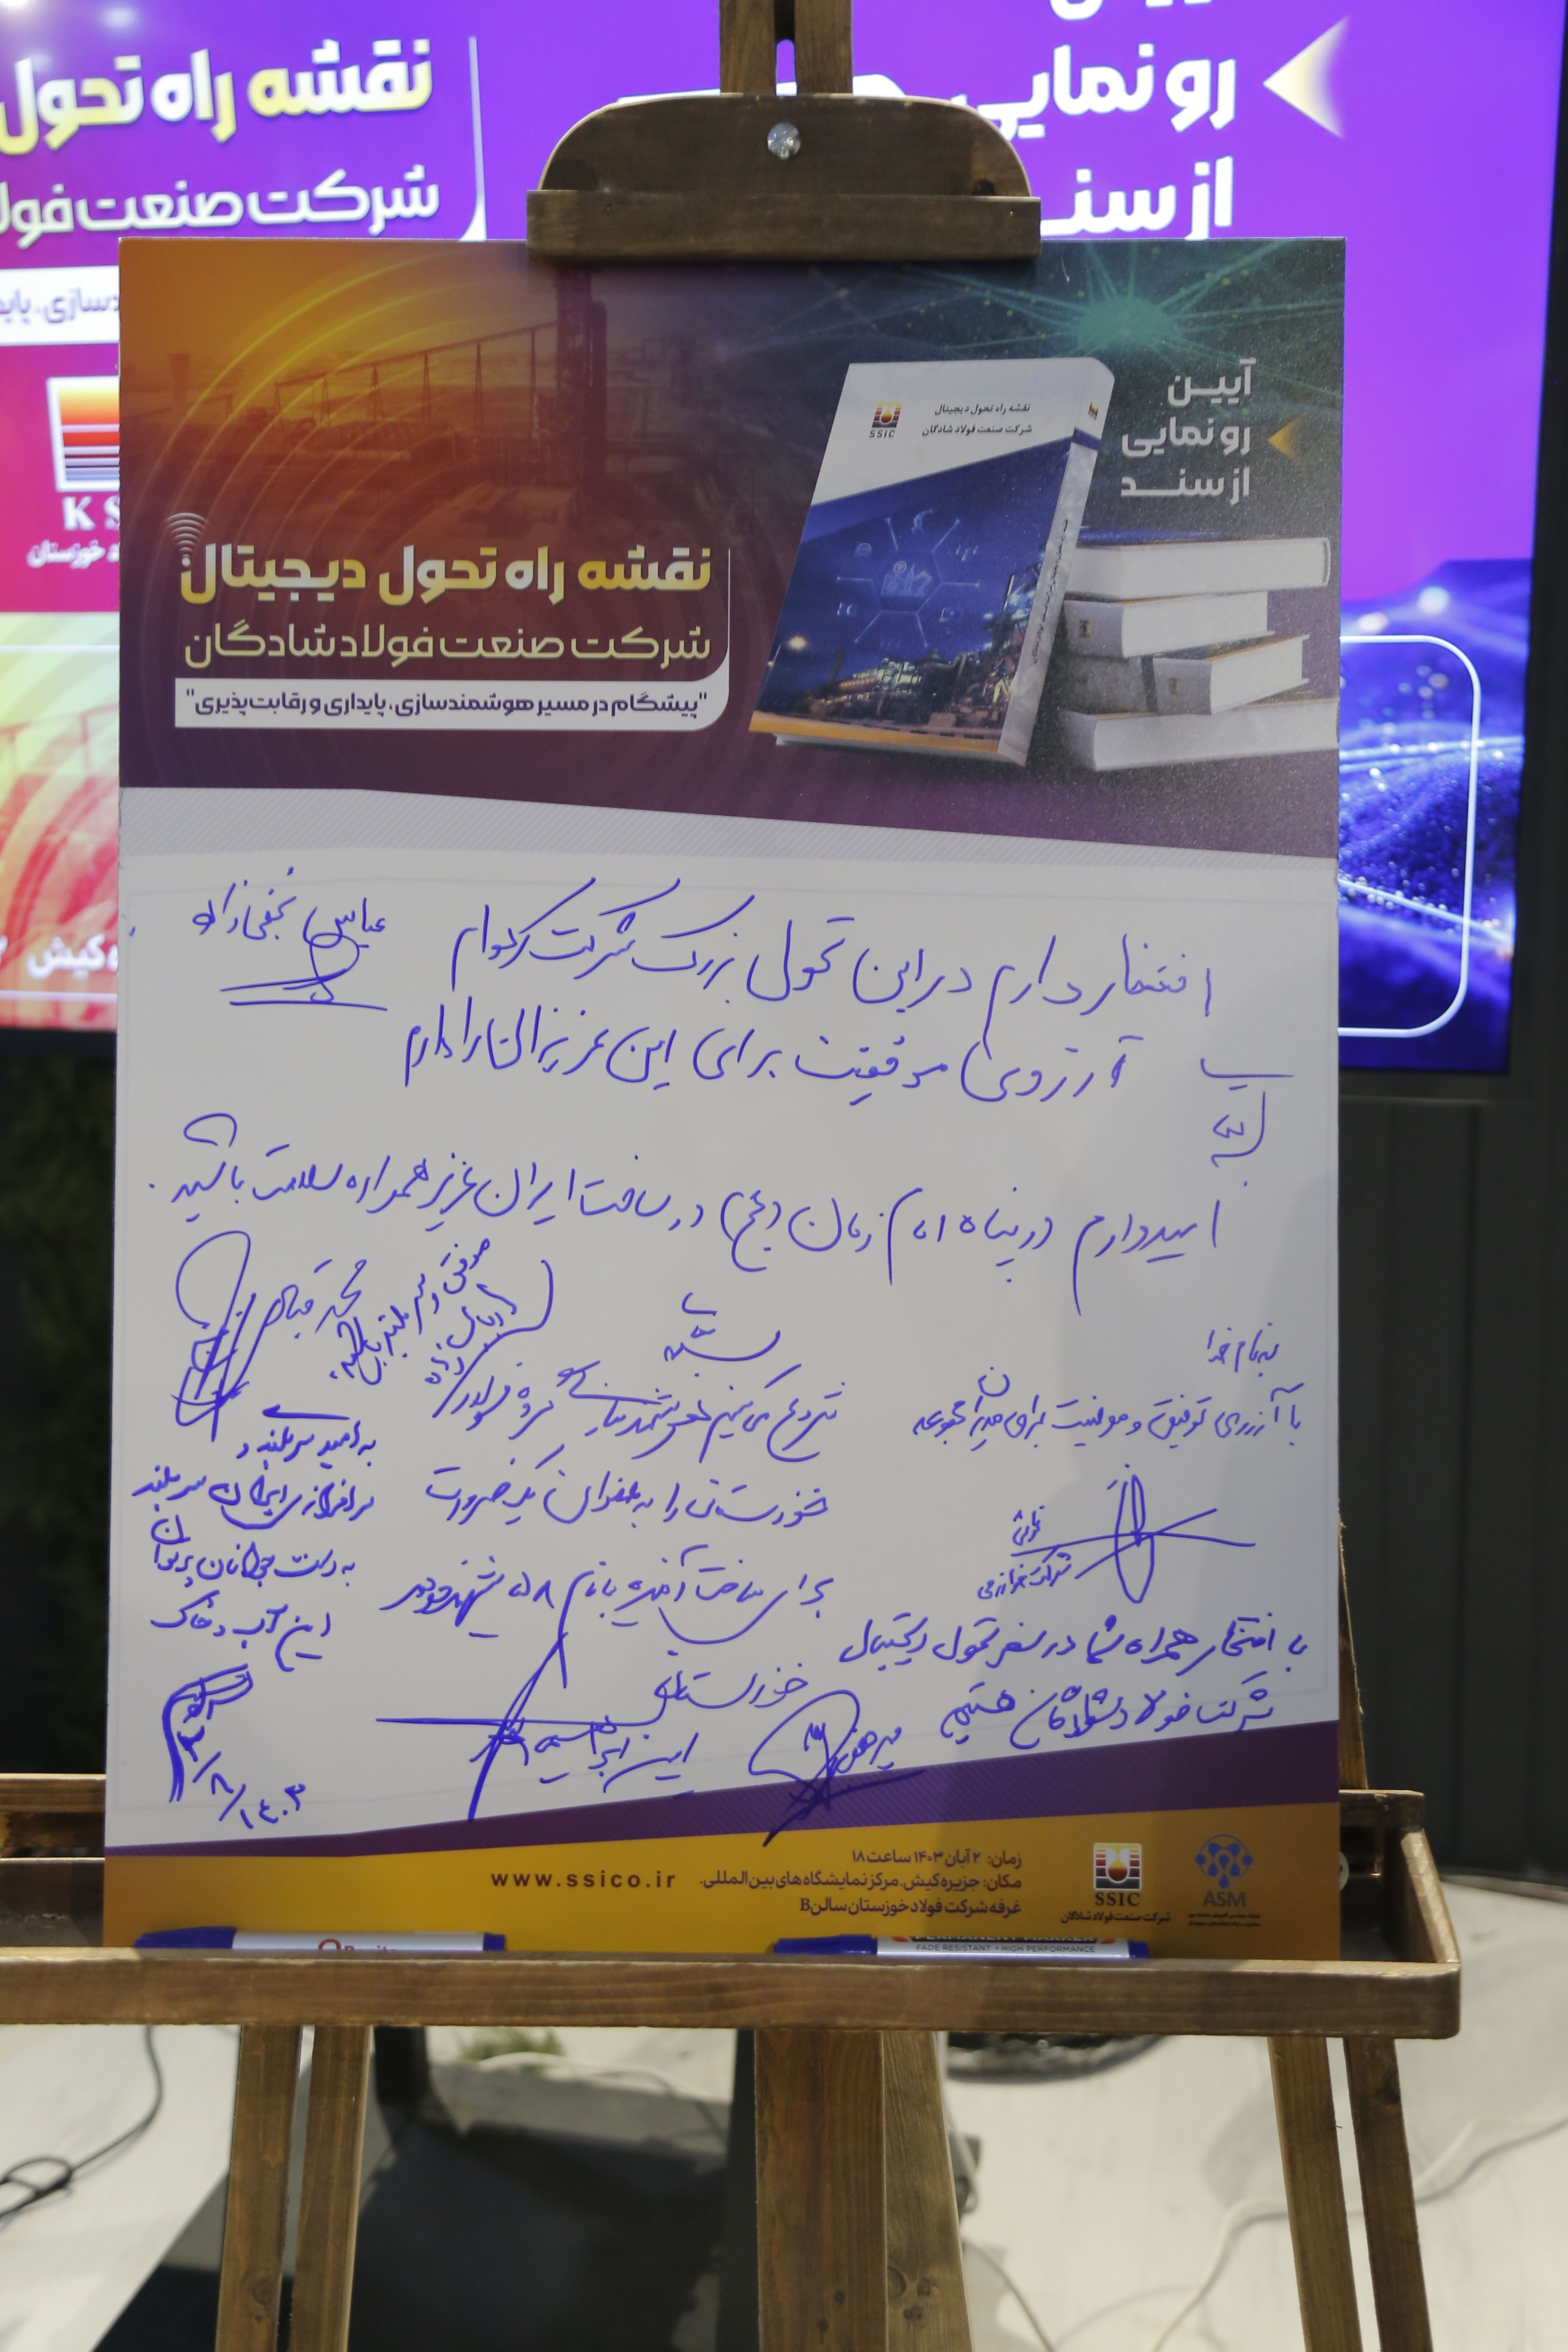 نقشه راه تحول
شرکت صنعت فولا
رو نمایی
از سنـ
K S
خوزستان
کیش
آییـن
رو نمایی
از سنـــد
نقشه راه تحول دیجیتال
شرکت صنعت فولاد شادگان
SSIC
نقشه راه تحول دیجیتال
شرکت صنعت فولاد شادگان
"پیشگام در مسیر هوشمندسازی، پایداری و رقابت‌پذیری"
افتخار دارم در این تحول بزرگ شرکت کرده‌ام
آرزوی موفقیت برای این عزیزان را دارم
عباس نجفی‌زاده
امیدوارم در پناه امام زمان (عج) در ساخت ایران عزیز همواره سلامت باشید.
محمد
موفق و سربلند باشید
به نام خدا
با آرزوی توفیق و موفقیت برای مدیران مجموعه
شرکت خوارزمی
شروع می‌کنیم هوشمندسازی گروه فولاد
خوزستان را به عنوان یک ضرورت
برای ساخت آینده با نام ۵۸ شهید
خوزستان
امین ابراهیمی
به امید سربلندی و
سرافرازی ایران سربلند
به دست جوانان پرتوان
این آب و خاک
۱۴۰۳/۸/
با افتخار همراه شما در سفر تحول دیجیتال
شرکت فولاد شادگان هستیم
زمان: ۲ آبان ۱۴۰۳ ساعت ۱۸
مکان: جزیره کیش، مرکز نمایشگاه های بین المللی،
غرفه شرکت فولاد خوزستان سالن B
www.ssico.ir
SSIC
شرکت صنعت فولاد شادگان
ASM
PERMANENT MARKER
FADE RESISTANT • HIGH PERFORMANCE